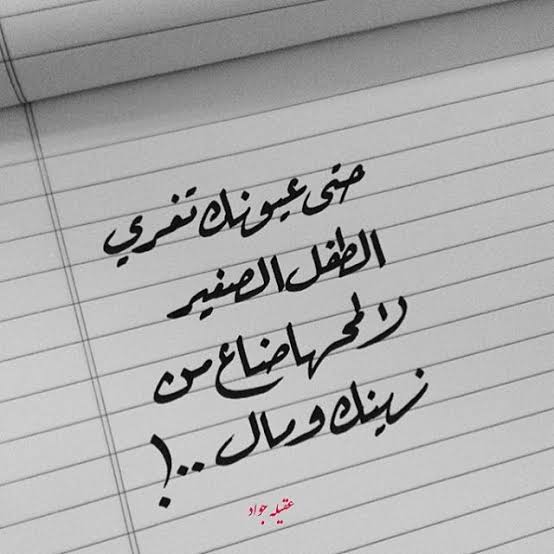 حتى عيونك تغري
الطفل الصغير
لا لمحها ضاع من
زينك ومال ..!
عقيله جواد